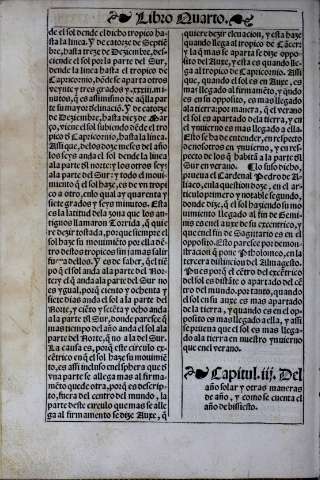 Libro Quarto.
de el sol dende el dicho tropico has
ta la linea. Y de catorze de Septiē
bre, hasta treze de Deziembre, desi
ciende el sol por la parte del Sur,
dende la linea hasta el tropico de
Capricornio, dōde se aparta otros
veynte y tres grados y .xxxiij. mi
nutos, q̄ es assi mismo de aq̄lla par
te su mayor declinaciō. Y de catorze
de Deziembre, hasta diez de Março
, viene el sol subiendo dēde el tro
pico d̄ Capricornio, hasta la linea.
Assi que, delos doze meses del año
los seys anda el sol dende la linea
ala parte d̄l norte: y los otros seys
ala parte del Sur: y todo el moui
mientō q̄ el sol haze, es de vn tropi
co a otro, enlo qual ay quarenta y
siete grados y seys minutos. Esta
es la latitud dela zona que los anti
guos llamaron Torrida, q̄ quie
re dezir tostada, por que siempre el
sol haze su mouimiētō por ella dē
tro destos tropicos sin jamas salir
fuera dellos. Y es de saber, q̄ el tiē
po q̄ el sol anda ala parte del Nor
te: y el q̄ anda ala parte del Sur no
es ygual, porq̄ ciento y ochenta y
siete dias anda el sol ala parte del
Norte, y ciēto y setēta y ocho anda
ala parte d̄l Sur, donde parece q̄
mas tiempo del año anda el sol ala
parte del Norte, q̄ no a la del Sur.
La causa es, porq̄ este circulo ex-
cētrico en q̄ el sol haze su mouimiē
to, es assi incluso enel sphera que d̄
vna parte se allega mas al firma-
mēto que de otra, porq̄ es descrip-
to, fuera del centro del mundo, la
parte deste circulo que mas se alle
ga al firmamento se dize Auxe, q̄
quiere dezir eleuacion, y esta haze
quando llega al tropico de Cācer:
y la q̄ mas se aparta se dize oppo
sito del Auxe, y esta es quando lle
ga al tropico de Capricornio. Assi
que, quando el sol es en Auxe, es
mas llegado al firmamēto, y quādo
es en su opposito, es mas llegado
ala tierra: por manera, q̄ el verano
el sol es apartado dela tierra, y en
el ynuierno es mas llegado a ella:
Esto se ha de entender, en respecto
de nosotros en ynuierno, y en res
pecto de los q̄ habitā a la parte d̄l
Sur en verano. Lo suso dicho,
prueua el Cardenal Pedro de A-
liaco, enla question doze, en el ar
ticulo primero y notable segundo,
donde dize, q̄ el sol haziendo su mo
uimiento llegado al fin de Gemi-
nis es enel auxe de su excentrico, y
que enel fin de Sagitario es en el
opposito. Esto paresce por demon
stracion q̄ pone Ptholoneo, en la
tercera distinction del Almagesto.
Pues porq̄ el cētro del excētrico
del sol es distāte o apartado del cē
tro del mundo, por tanto, quando
el sol en su auxe es mas apartado
de la tierra, y quando es en el op-
posito es mas llegado a ella, y assi
se prueua que el sol es mas llega-
do ala tierra en nuestro ynuierno
que enel verano.
Capitul. iij. Del
año solar y otras maneras
de año, y como se cuenta el
año de bissiesto.